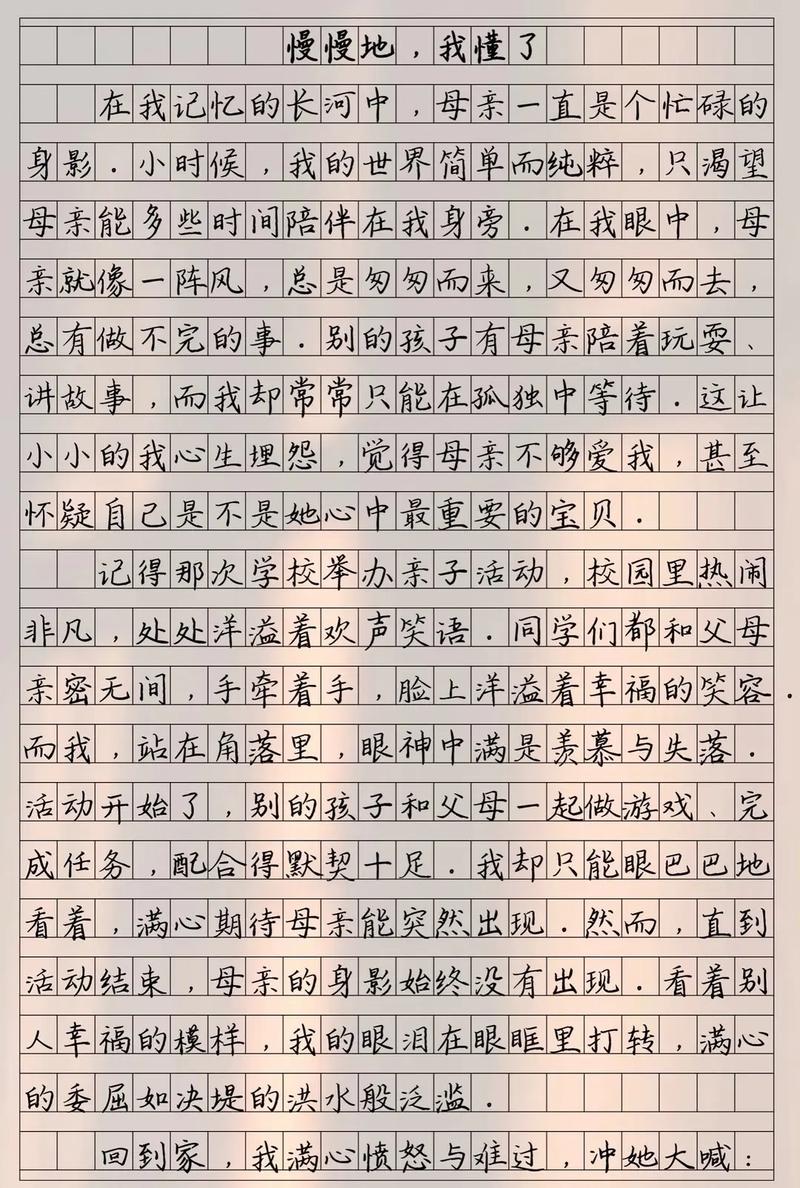 慢慢地，我懂了
在我记忆的长河中，母亲一直是个忙碌的
身影．小时候，我的世界简单而纯粹，只渴望
母亲能多些时间陪伴在我身旁．在我眼中，母
亲就像一阵风，总是匆匆而来，又匆匆而去，
总有做不完的事．别的孩子有母亲陪着玩耍、
讲故事，而我却常常只能在孤独中等待．这让
小小的我心生埋怨，觉得母亲不够爱我，甚至
怀疑自己是不是她心中最重要的宝贝．
记得那次学校举办亲子活动，校园里热闹
非凡，处处洋溢着欢声笑语．同学们都和父母
亲密无间，手牵着手，脸上洋溢着幸福的笑容．
而我，站在角落里，眼神中满是羡慕与失落．
活动开始了，别的孩子和父母一起做游戏、完
成任务，配合得默契十足．我却只能眼巴巴地
看着，满心期待母亲能突然出现．然而，直到
活动结束，母亲的身影始终没有出现．看着别
人幸福的模样，我的眼泪在眼眶里打转，满心
的委屈如决堤的洪水般泛滥．
回到家，我满心愤怒与难过，冲她大喊：